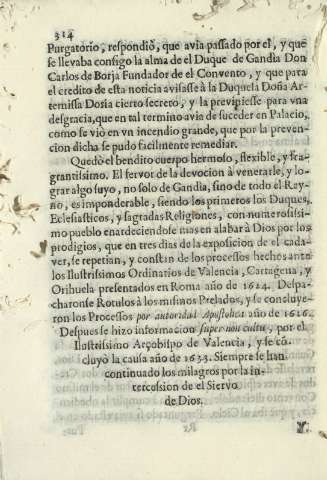 314
Purgatorio, respondiò, que avia passado por el, y que
se llevaba consigo la alma de el Duque de Gandia Don
Carlos de Borja Fundador de el Convento, y que para
el credito de esta noticia avisasse à la Duquesa Doña Ar-
temissa Doria cierto secreto, y la previniesse para vna
desgracia, que en tal termino avia de suceder en Palacio,
como se vio en vn incendio grande, que por la preven-
cion dicha se pudo facilmente remediar.
Quedò el bendito cuerpo hermoso, flexible, y fra-
grantissimo. El fervor de la devocion à venerarle, y lo-
grar algo suyo, no solo de Gandia, sino de todo el Rey-
no, es imponderable, siendo los primeros los Duques,
Eclesiasticos, y sagradas Religiones, con numerosissi-
mo pueblo enardeciendose mas en alabar à Dios por los
prodigios, que en tres dias de la exposicion de el cada-
ver, se repetian, y constan de los processos hechos ante
los Ilustrissimos Ordinarios de Valencia, Cartagena, y
Orihuela presentados en Roma año de 1614. Despa-
charonse Rotulos à los mismos Prelados, y se concluye-
ron los Processos por autoridad Apostolica año de 1616.
Despues se hizo informacion super non cultu, por el
Ilustrissimo Arçobispo de Valencia, y se cõ-
cluyò la causa año de 1633. Siempre se han
continuado los milagros por la in-
tercession de el Siervo
de Dios.